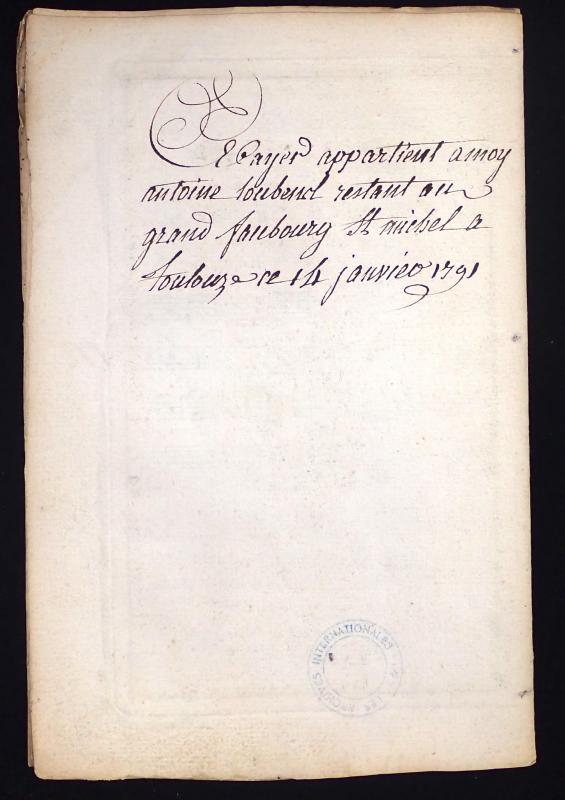 Ce Cayer appartient a moy
antoine Loubend restant au
grand faubourg St michel a
toulouze ce 14 janvier 1791
LES ARCHIVES INTERNATIONALES